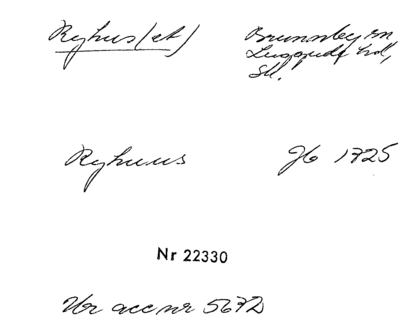 Ryhus(et)
Brunnby sn
Luggude hd,
Sk.
Ryhuus
Jb 1725
Nr 22330
Ur acc nr 5672